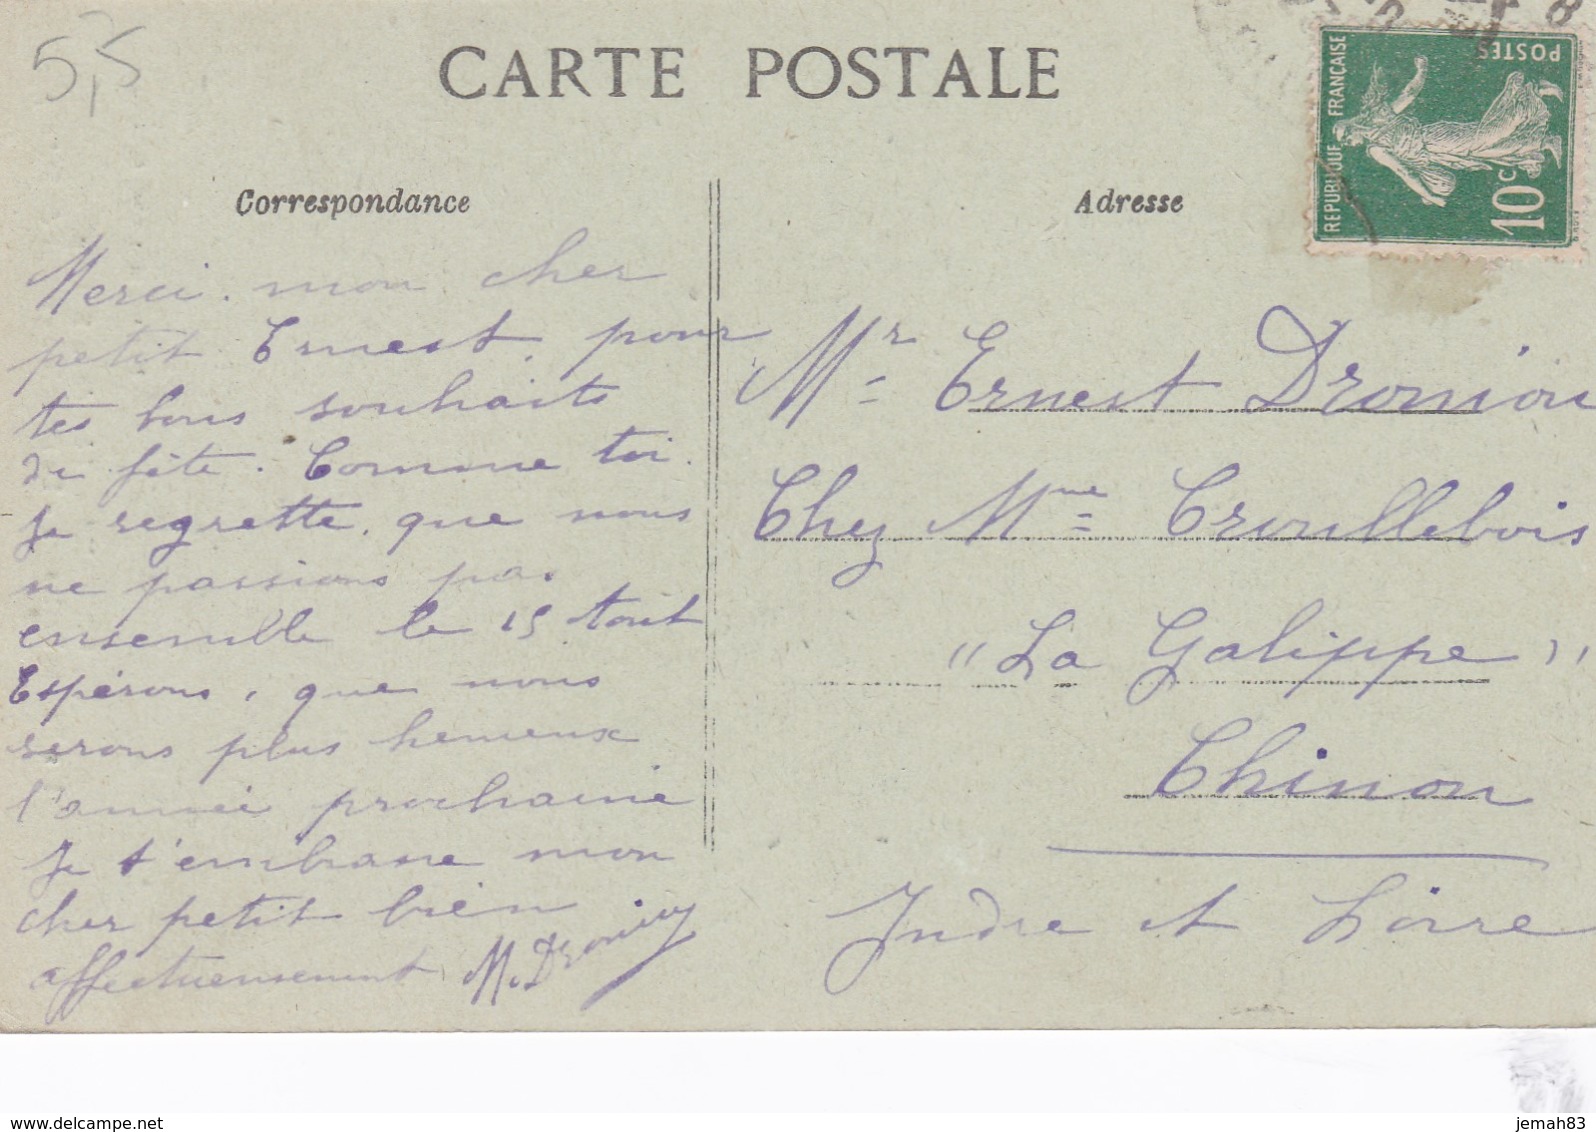 5,5
CARTE POSTALE
REPUBLIQUE FRANÇAISE
POSTES
10 c
Correspondance
Adresse
Merci. mon cher
petit Ernest, pour
tes bons souhaits
de fête. Comme toi.
Je regrette, que nous
ne passions pas
ensemble le 15 Aout
Espérons, que nous
serons plus heureux
l'année prochaine
Je t'embrasse mon
cher petit bien
affectueusement M. Drouiou
Mr Ernest Drouiou
Chez Mme Crouillebois
"La Galippe"
Chinon
Indre et Loire
www.delcampe.net
jemah83